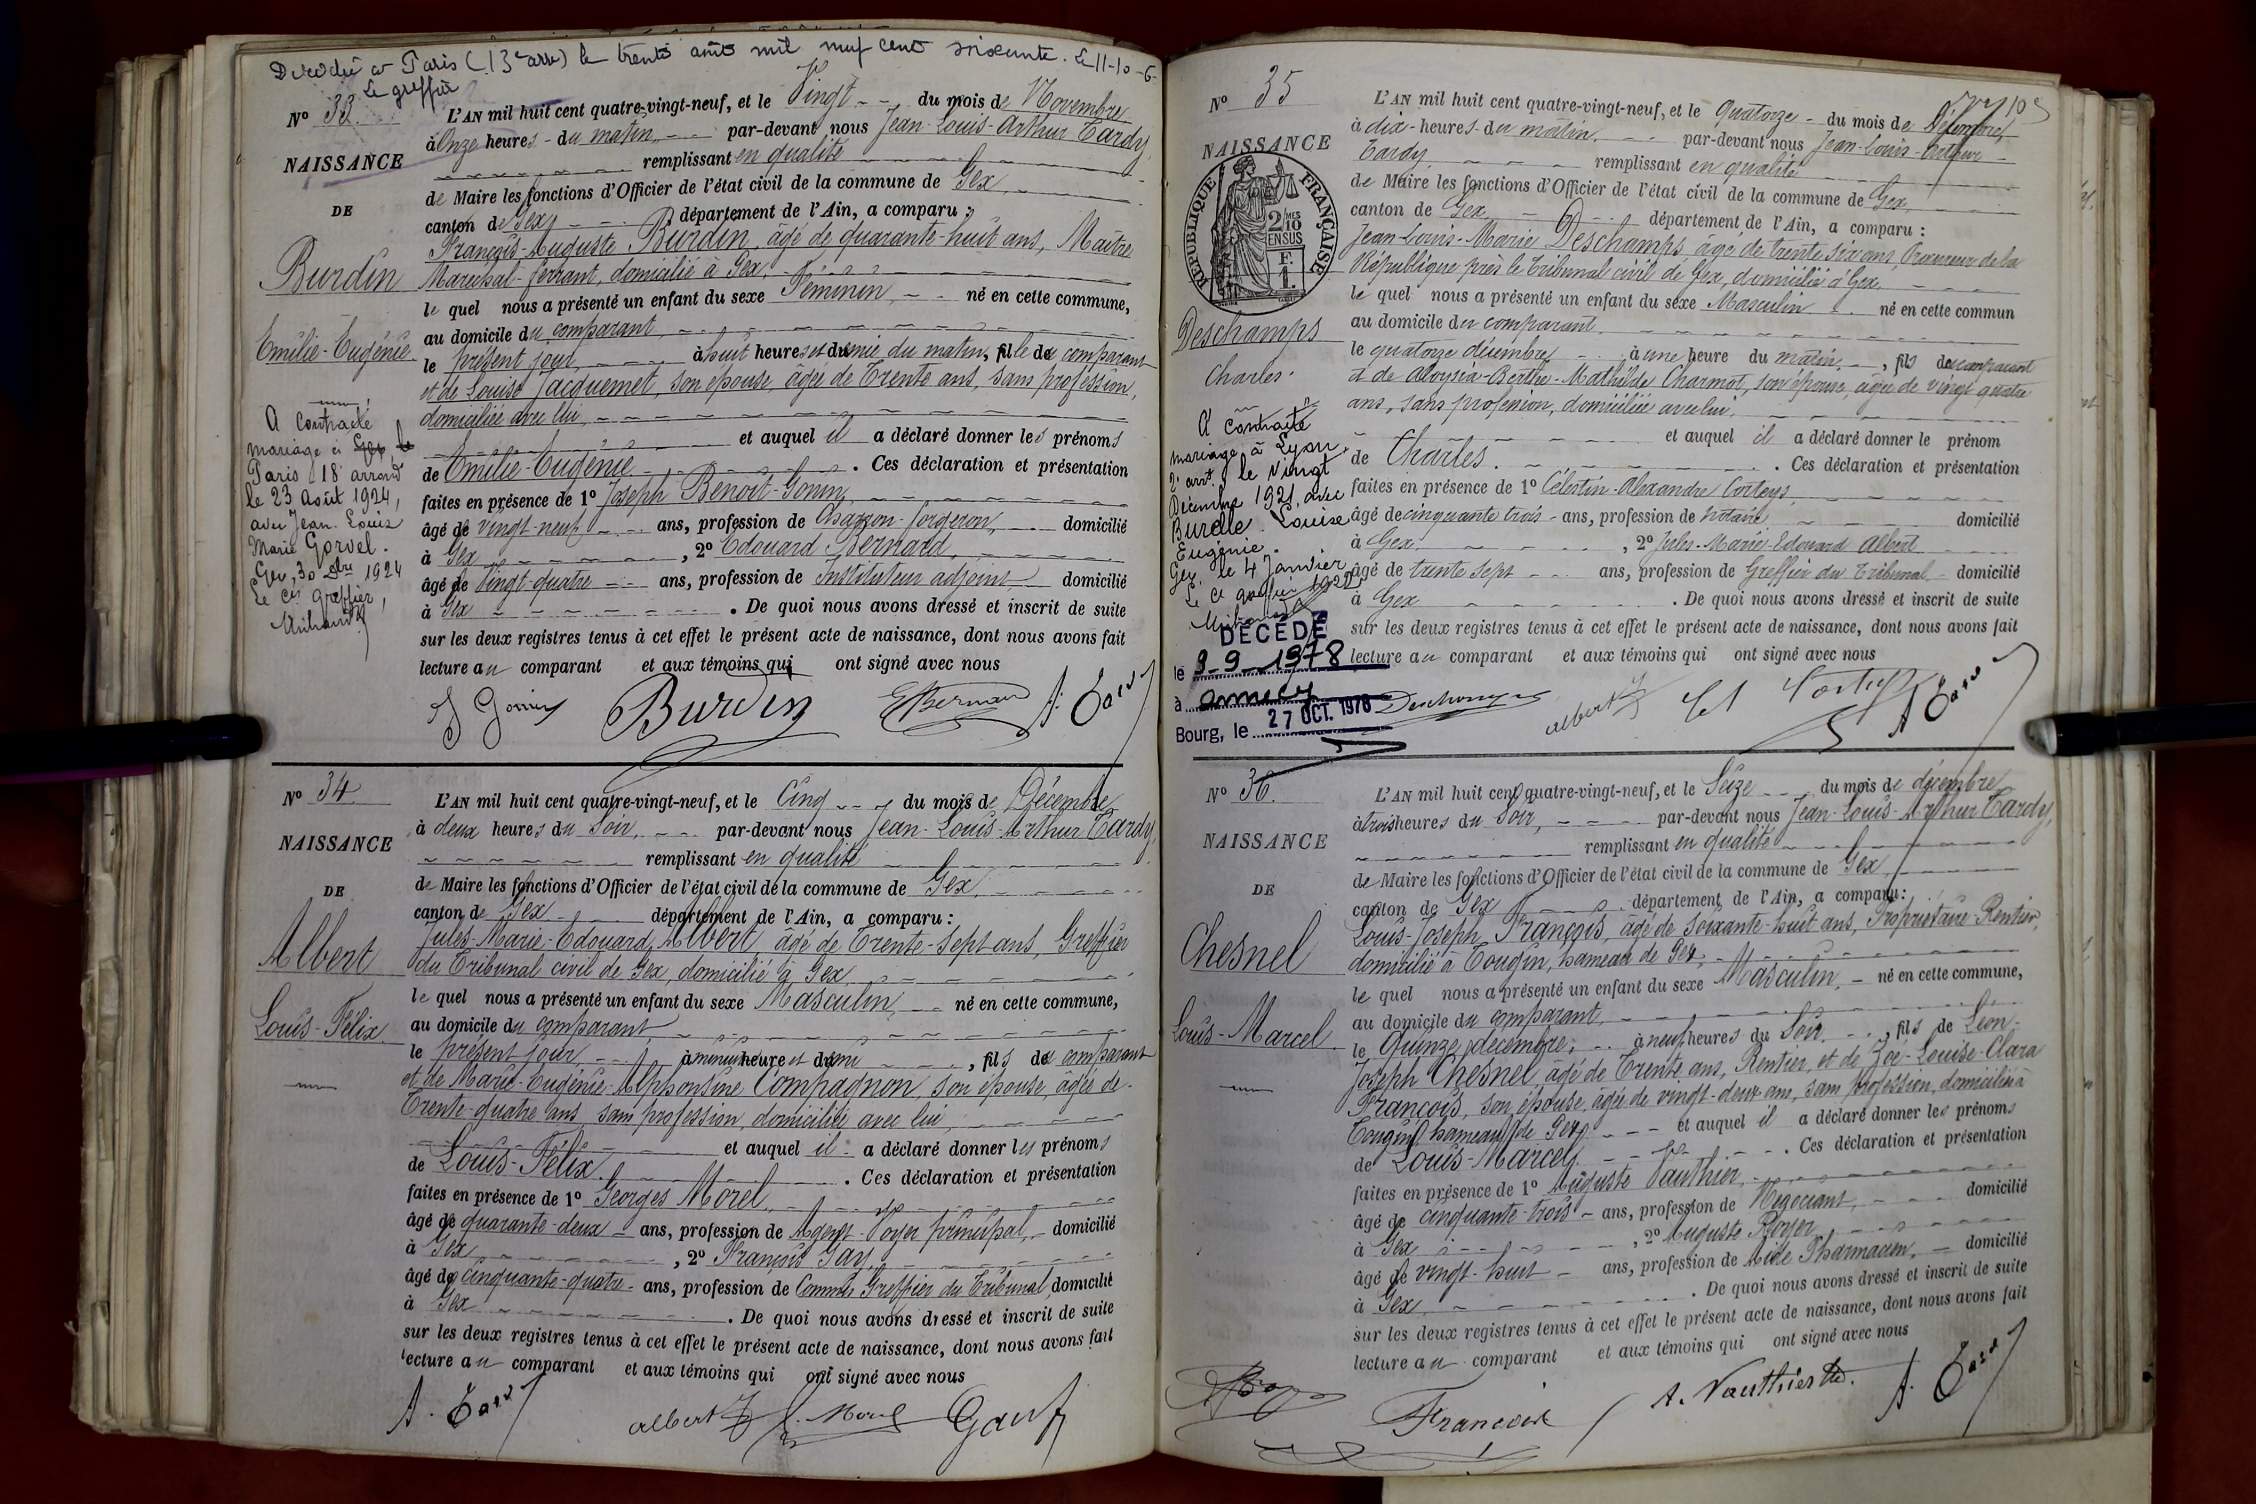 Décédée à Paris (13e arrt) le trente août mil neuf cent soixante. Le 11-10-6
Le greffier
N° 33
NAISSANCE
DE
Burdin
Emilie-Eugénie
A contracté
mariage à Gex, le
Paris 18 arrond
le 23 Août 1924,
avec Jean Louis
Marie Gorvel.
Gex, 30 Dbre 1924
Le cis greffier,
L'AN mil huit cent quatre-vingt-neuf, et le Vingt du mois de Novembre
à Onze heures du matin par-devant nous Jean-Louis-Arthur Tardy,
remplissant en qualité
de Maire les fonctions d'Officier de l'état civil de la commune de Gex,
canton de Gex, département de l'Ain, a comparu :
François-Auguste Burdin, âgé de quarante-huit ans, Maître
Maréchal-ferrant, domicilié à Gex,
le quel nous a présenté un enfant du sexe Féminin, né en cette commune,
au domicile du comparant,
le présent jour, à huit heures et demie du matin, fille de comparant
et de Louise Jacquemet, son épouse, âgée de Trente ans, sans profession,
domiciliée avec lui,
et auquel il a déclaré donner les prénoms
de Emilie-Eugénie. Ces déclaration et présentation
faites en présence de 1° Joseph Benoit-Gonin,
âgé de vingt-neuf ans, profession de Charron-forgeron, domicilié
à Gex, 2° Edouard Bernard,
âgé de Vingt-quatre ans, profession de Instituteur adjoint, domicilié
à Gex. De quoi nous avons dressé et inscrit de suite
sur les deux registres tenus à cet effet le présent acte de naissance, dont nous avons fait
lecture au comparant et aux témoins qui ont signé avec nous
J Gonin Burdin E Bernard A. Tardy
N° 34
NAISSANCE
DE
Albert
Louis-Félix
L'AN mil huit cent quatre-vingt-neuf, et le Cinq du mois de Décembre
à deux heures du Soir, par-devant nous Jean-Louis-Arthur Tardy,
remplissant en qualité
de Maire les fonctions d'Officier de l'état civil de la commune de Gex,
canton de Gex département de l'Ain, a comparu :
Jules-Marie-Edouard Albert, âgé de Trente-sept ans, Greffier
du Tribunal civil de Gex, domicilié à Gex,
le quel nous a présenté un enfant du sexe Masculin, né en cette commune,
au domicile du comparant,
le présent jour à minuit heure et demie, fils de comparant
et de Marie-Eugénie-Alphonsine Compagnon, son épouse, âgée de
Trente-quatre ans, sans profession, domiciliée avec lui,
et auquel il a déclaré donner les prénoms
de Louis-Félix. Ces déclaration et présentation
faites en présence de 1° Georges Morel,
âgé de quarante-deux ans, profession de Agent-Voyer principal, domicilié
à Gex, 2° François Gay,
âgé de cinquante-quatre ans, profession de Commis Greffier du Tribunal, domicilié
à Gex. De quoi nous avons dressé et inscrit de suite
sur les deux registres tenus à cet effet le présent acte de naissance, dont nous avons fait
lecture au comparant et aux témoins qui ont signé avec nous
A. Tardy albert Morel Gay
N° 35
NAISSANCE
RÉPUBLIQUE FRANÇAISE
2 MES
10
EN SUS
F.
1.
Deschamps
Charles.
A contracté
mariage à Lyon
2e arrt. le vingt
Décembre 1921, avec
Burelle Louise
Eugénie.
Gex, le 4 Janvier
1922
Le cis greffier
DÉCÉDÉ
le 9-9-1978
à annecy
Bourg, le 27 OCT. 1978
L'AN mil huit cent quatre-vingt-neuf, et le quatorze du mois de Décembre
à dix heures du matin. par-devant nous Jean-Louis-Arthur
Tardy, remplissant en qualité
de Maire les fonctions d'Officier de l'état civil de la commune de Gex,
canton de Gex département de l'Ain, a comparu :
Jean-Louis-Marie Deschamps âgé de trente six ans, Procureur de la
République près le Tribunal civil de Gex, domicilié à Gex,
le quel nous a présenté un enfant du sexe Masculin né en cette commun
au domicile du comparant.
le quatorze décembre à une heure du matin, fils de comparant
et de Aloysia-Berthe-Mathilde Charmot, son épouse, âgée de vingt quatre
ans, sans profession, domiciliée avec lui,
et auquel il a déclaré donner le prénom
de Charles. Ces déclaration et présentation
faites en présence de 1° Célestin-Alexandre Corteys
âgé de cinquante trois ans, profession de notaire domicilié
à Gex, 2° Jules-Marie Edouard Albert
âgé de trente sept ans, profession de Greffier du Tribunal domicilié
à Gex. De quoi nous avons dressé et inscrit de suite
sur les deux registres tenus à cet effet le présent acte de naissance, dont nous avons fait
lecture au comparant et aux témoins qui ont signé avec nous
Deschamps albert Corteys A Tardy
N° 36.
NAISSANCE
DE
Chesnel
Louis-Marcel
L'AN mil huit cent quatre-vingt-neuf, et le Seize du mois de décembre
à trois heures du Soir, par-devant nous Jean-Louis-Arthur Tardy,
remplissant en qualité
de Maire les fonctions d'Officier de l'état civil de la commune de Gex,
canton de Gex département de l'Ain, a comparu :
Louis-Joseph François, âgé de soixante-huit ans, Propriétaire-Rentier,
domicilié à Tougin, hameau de Gex,
le quel nous a présenté un enfant du sexe Masculin, né en cette commune,
au domicile du comparant,
le Quinze décembre, à neuf heures du Soir, fils de Léon-
Joseph Chesnel, âgé de Trente ans, Rentier, et de Zoé-Louise-Clara
François, son épouse, âgée de vingt-deux ans, sans profession, domiciliés à
Tougin hameau de Gex, et auquel il a déclaré donner les prénoms
de Louis-Marcel. Ces déclaration et présentation
faites en présence de 1° Auguste Vauthier,
âgé de cinquante-trois ans, profession de Négociant, domicilié
à Gex, 2° Auguste Royer,
âgé de vingt-huit ans, profession de Aide Pharmacien, domicilié
à Gex. De quoi nous avons dressé et inscrit de suite
sur les deux registres tenus à cet effet le présent acte de naissance, dont nous avons fait
lecture au comparant et aux témoins qui ont signé avec nous
François A. Vauthier A. Tardy